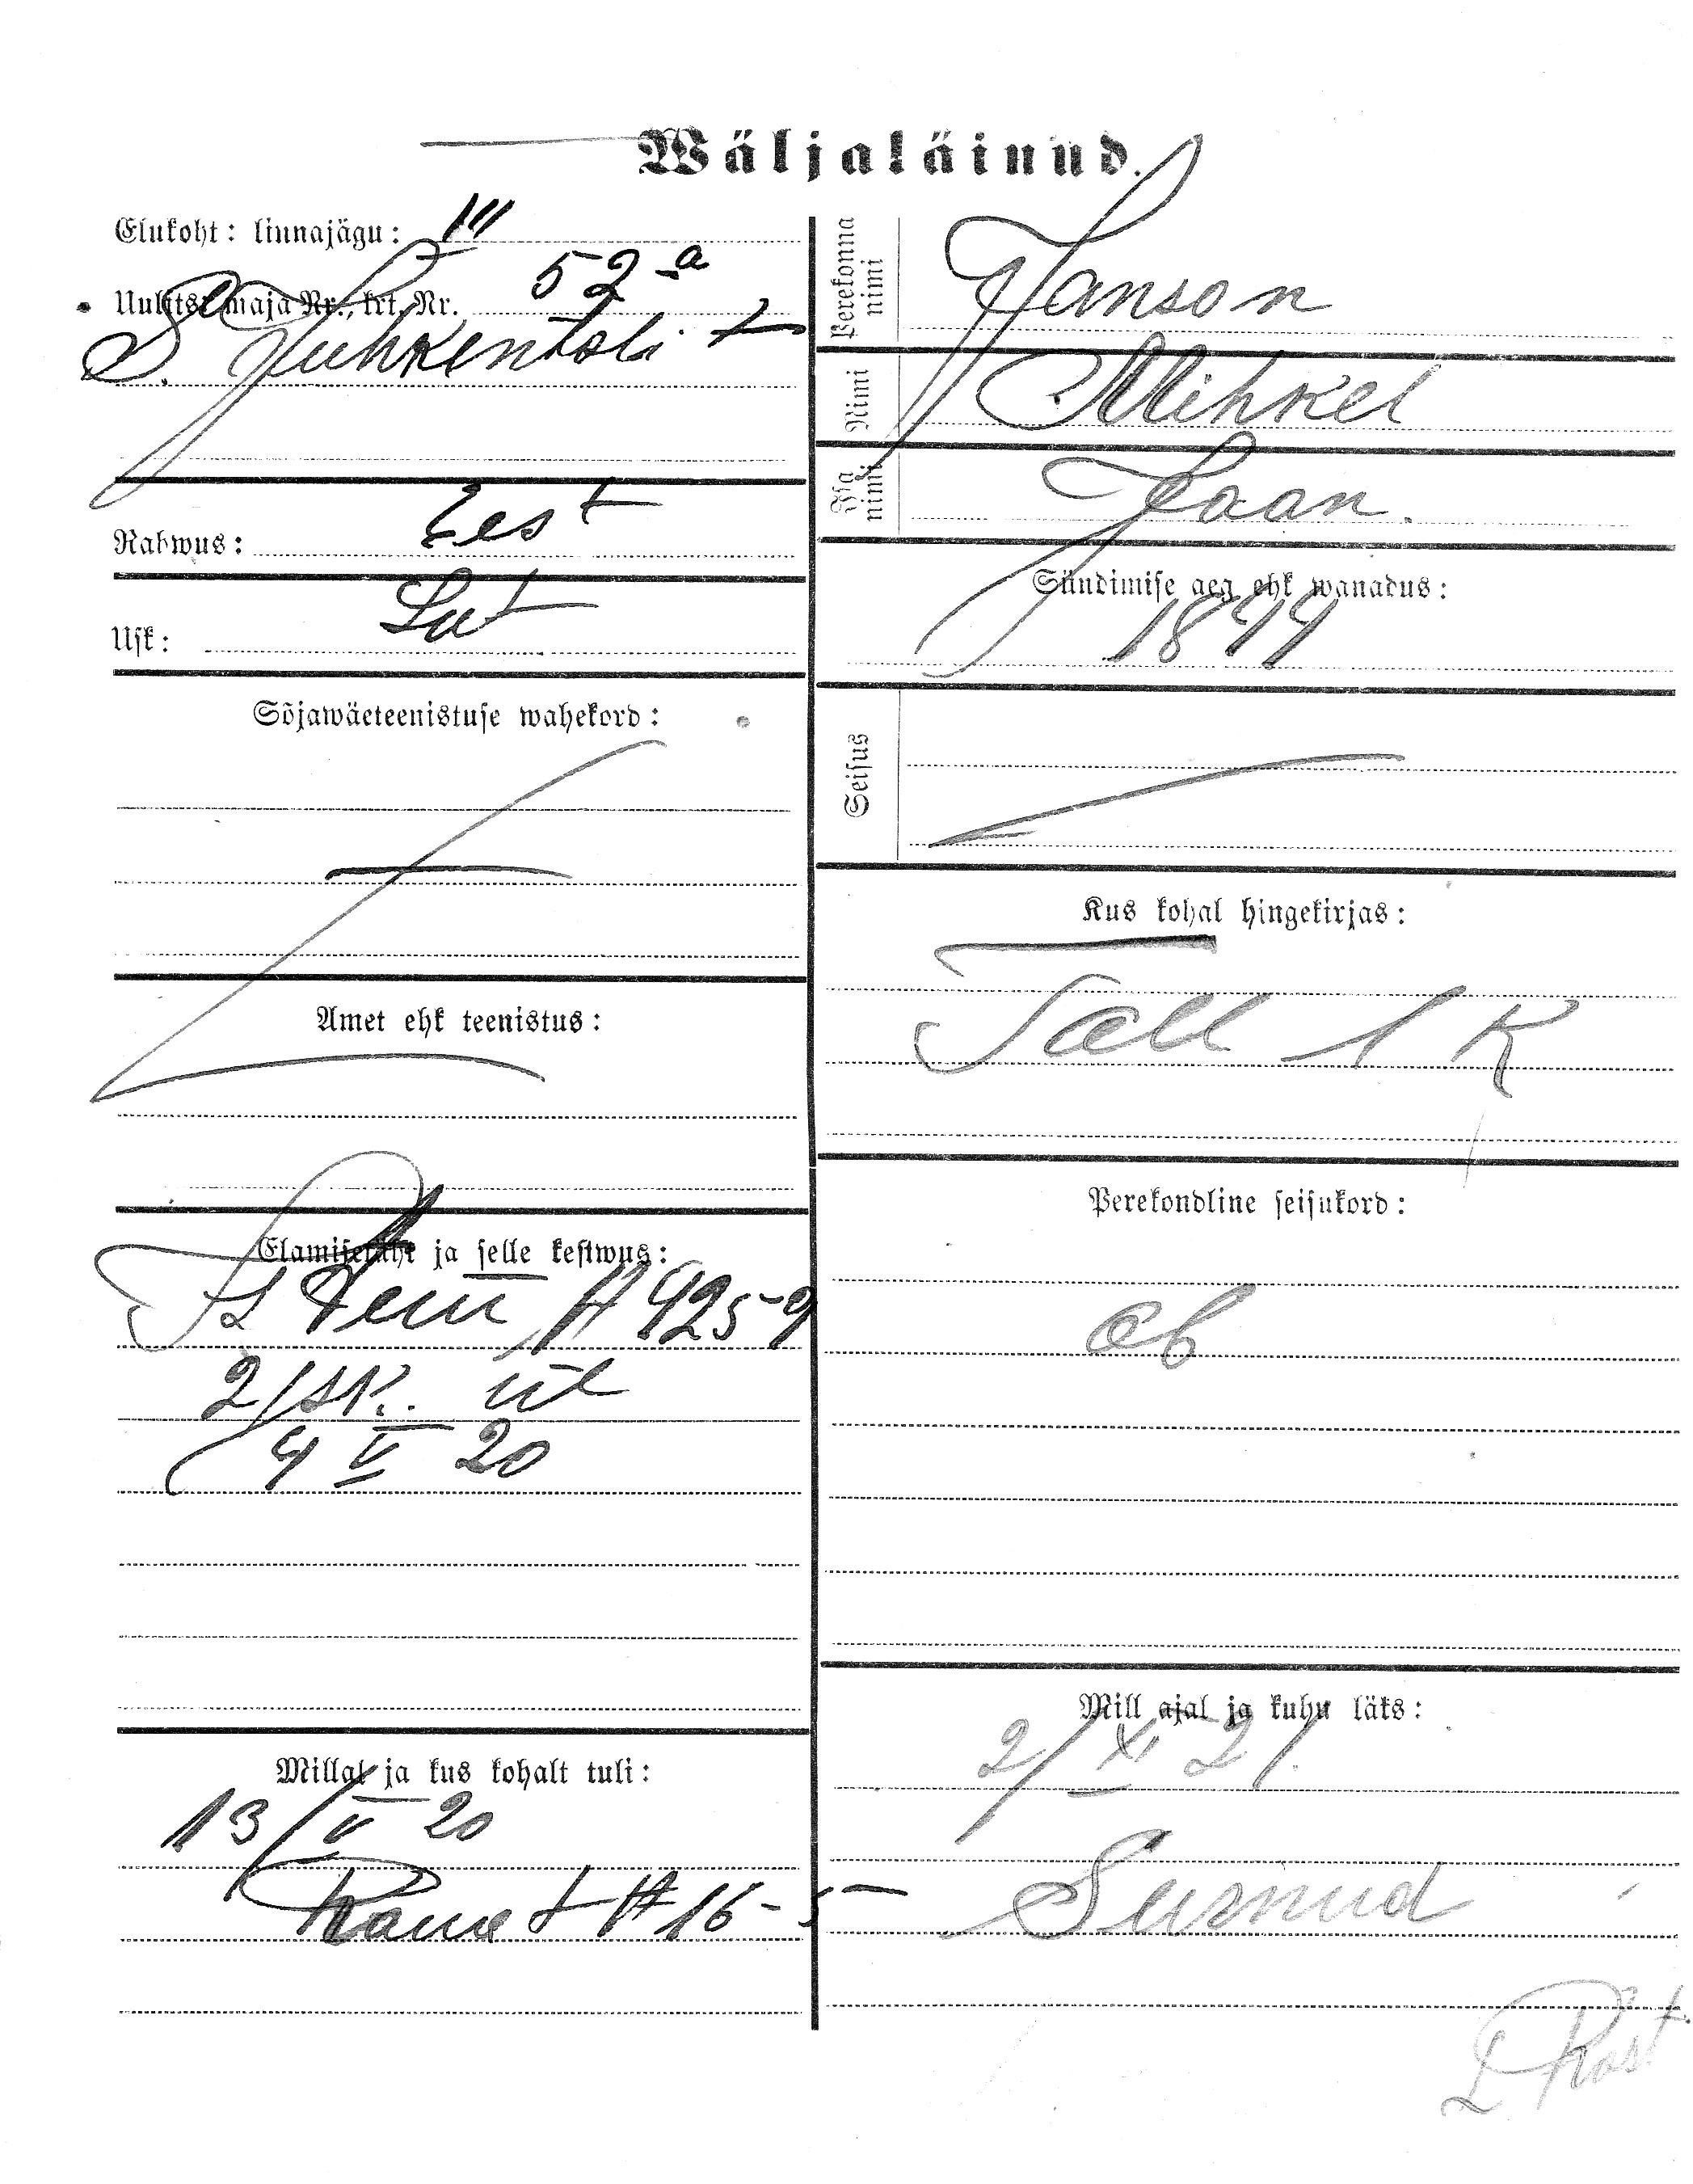 Wäljakäinud.
Elukoht: linnajägu: III
Uulitse, maja Nr., krt. Nr. 52-a
S. Juhkentali t
Rahwus: Eest
Usk: Lut
Sõjawäeteenistuse wahekord:
Amet ehk teenistus:
Elamisetäht ja selle kestwus:
2/sk. ül
4 V 20
Millal ja kus kohalt tuli:
13/V 20
Raua t № 16-5
Perekonna nimi Janson
Nimi Mihkel
Isa nimi Jaan.
Sündimise aeg ehk wanadus:
1844
Seisus
Kus kohal hingekirjas:
Tall 1 K
Perekondline seisukord:
ab
Mill ajal ja kuhu läks:
2/XI 21.
Surnud